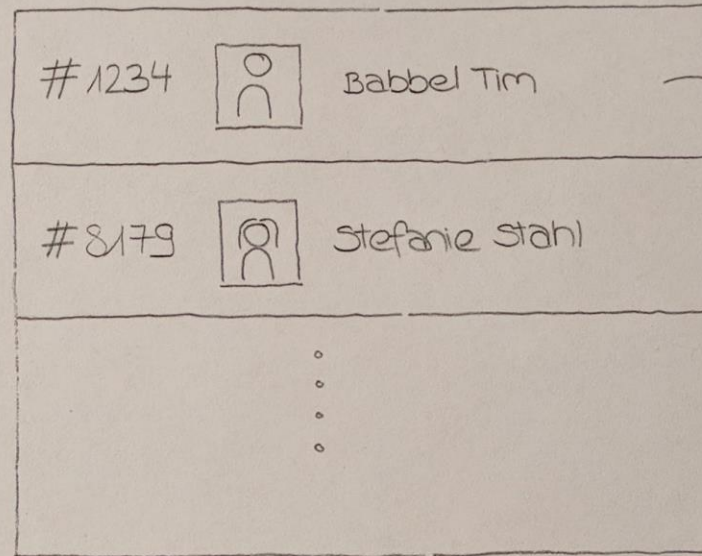 #1234 Babbel Tim
#8179 Stefanie Stahl